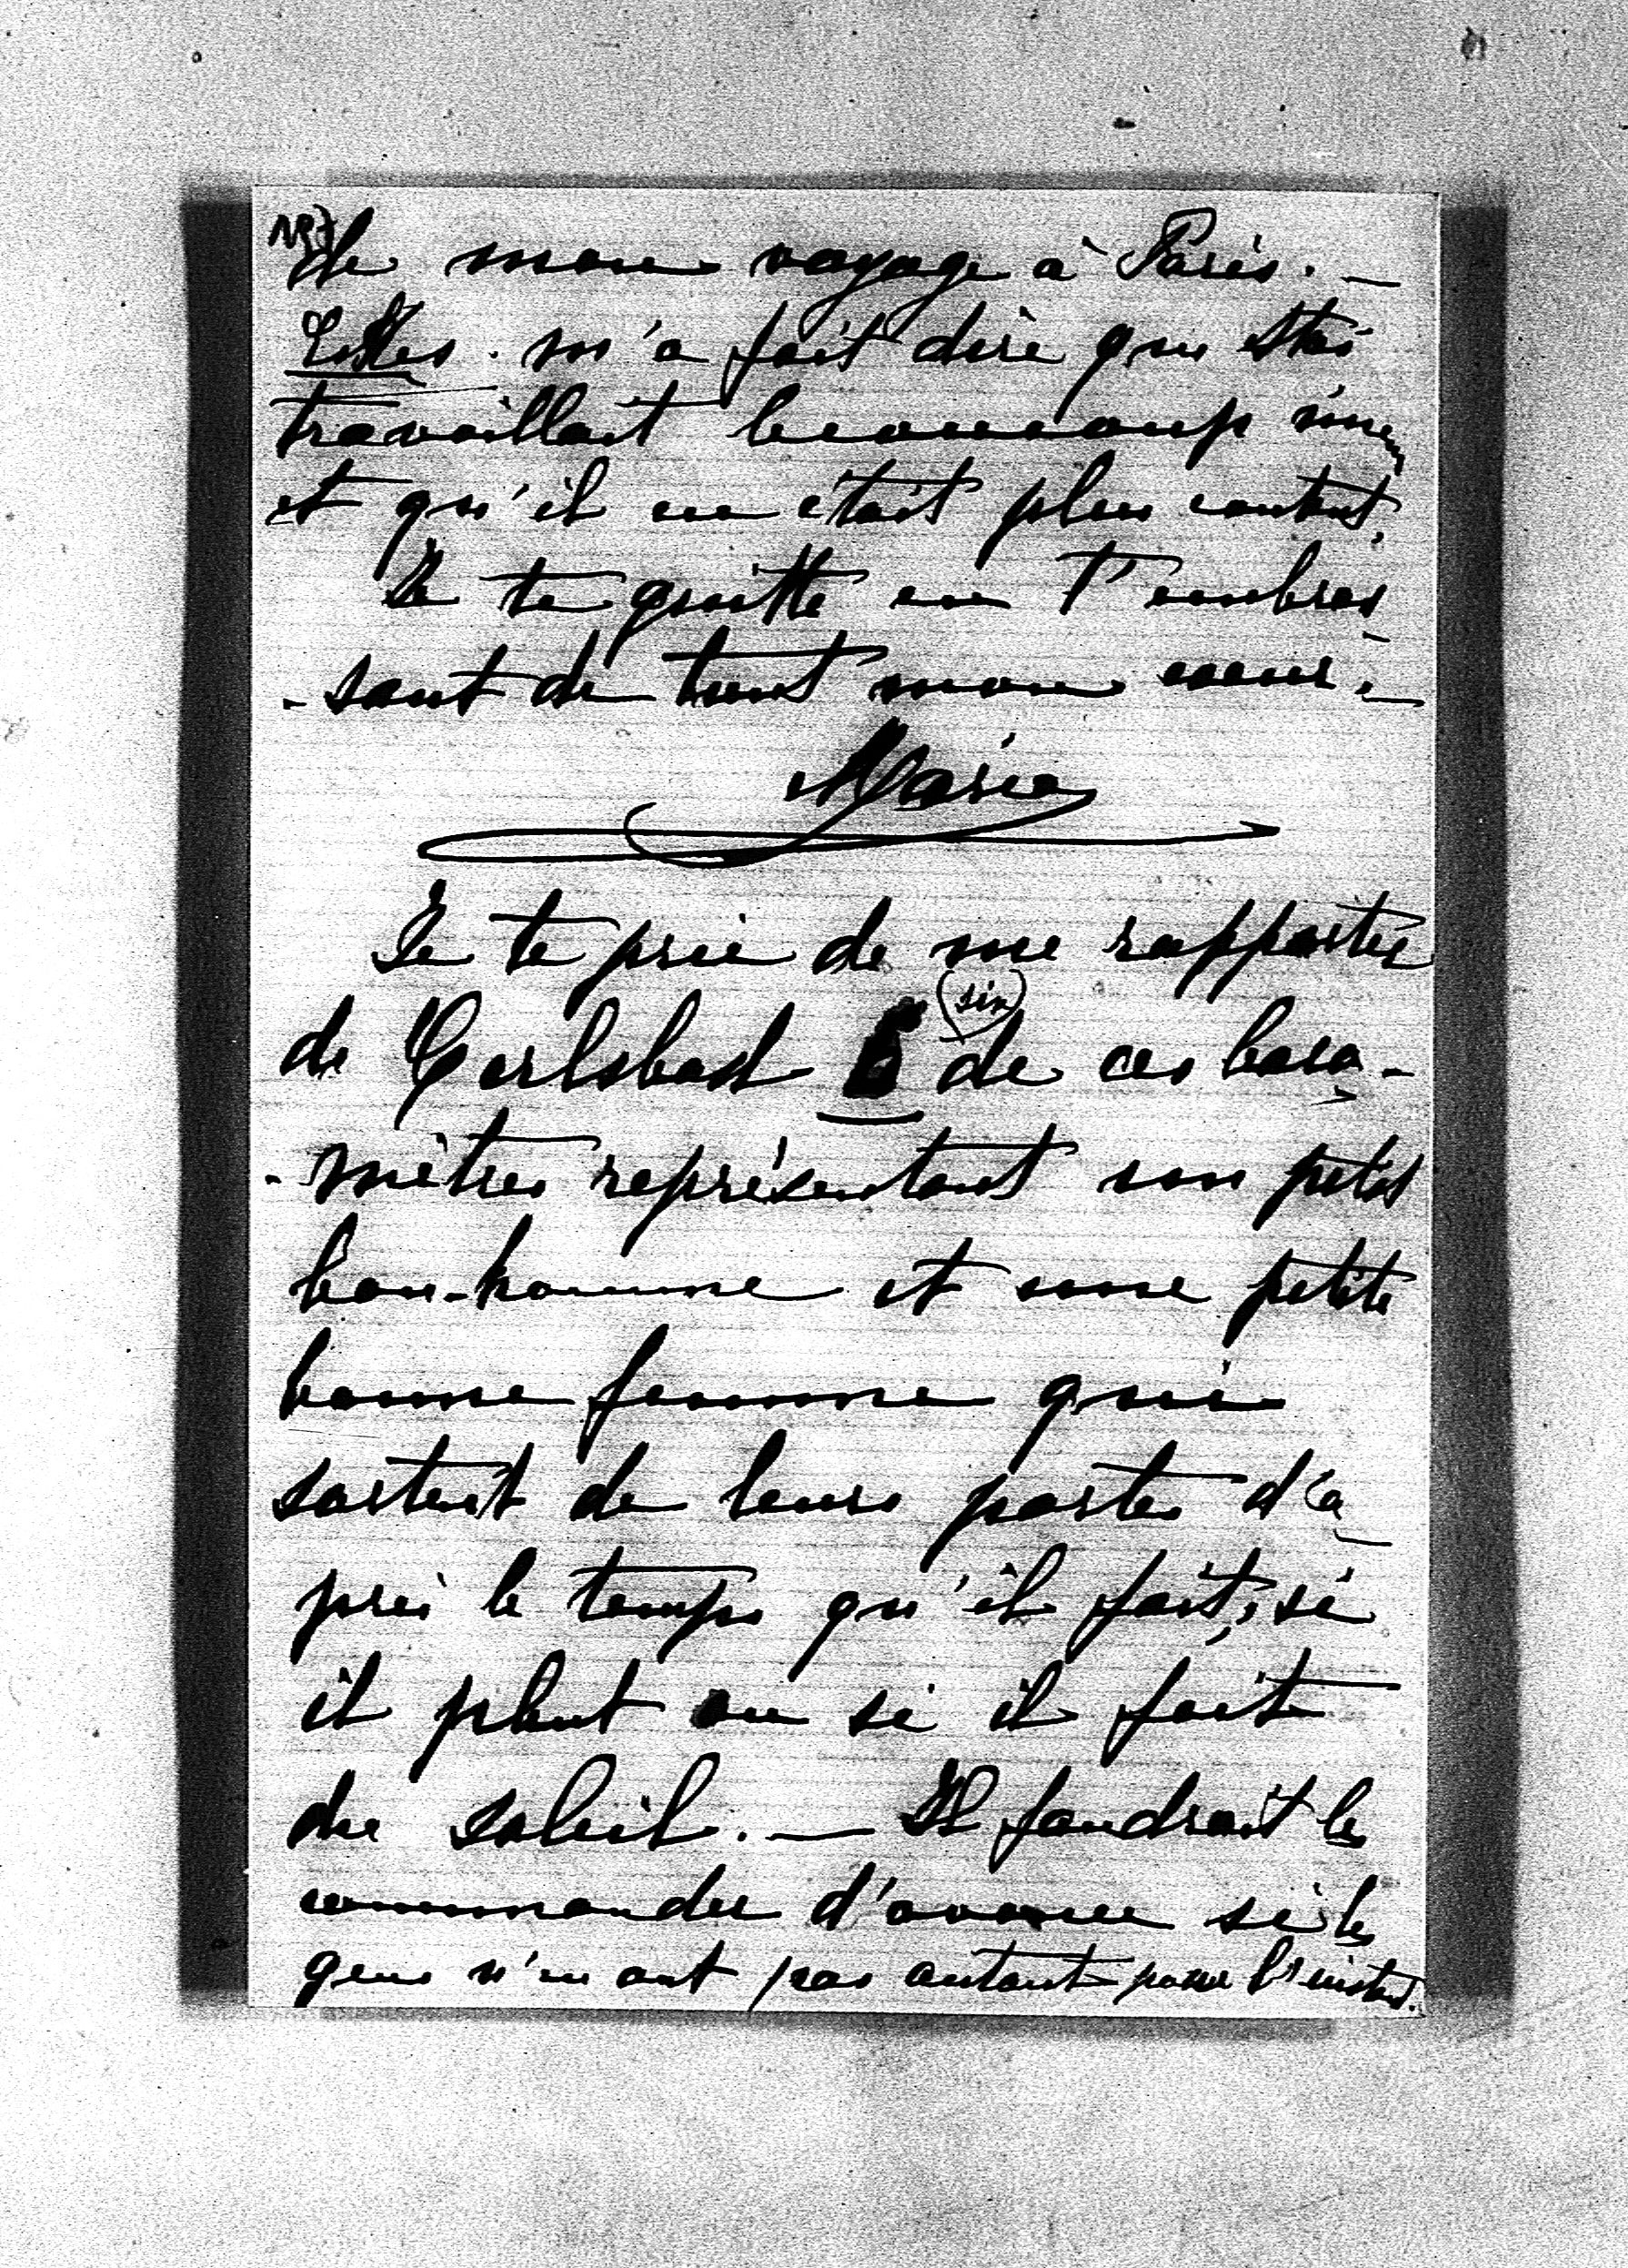 Nº 7
de mon voyage à Paris. —
m'a fait dire que
travaillait beaucoup
et qu'il en était plus content.
Je te quitte en t'embras
- sant de tout mon coeur. —
Marie
Je te prie de me rapporter
de Carlsbad 6 (six) de ces baro -
- mètres représentant un petit
bon-homme et une petite
bonne femme qui
sortent de leurs portes d'a
près le temps qu'il fait, si
il pleut ou si il fait
du soleil. — Il faudrait les
commander d'avance si les
gens n'en ont pas autant pour l'instant.